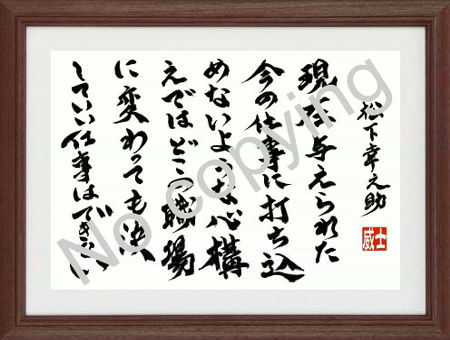 松下幸之助
現在与えられた
今の仕事に打ち込
めないような心構
えではどこの職場
に変わっても決
していい仕事はできない
士威
No copying